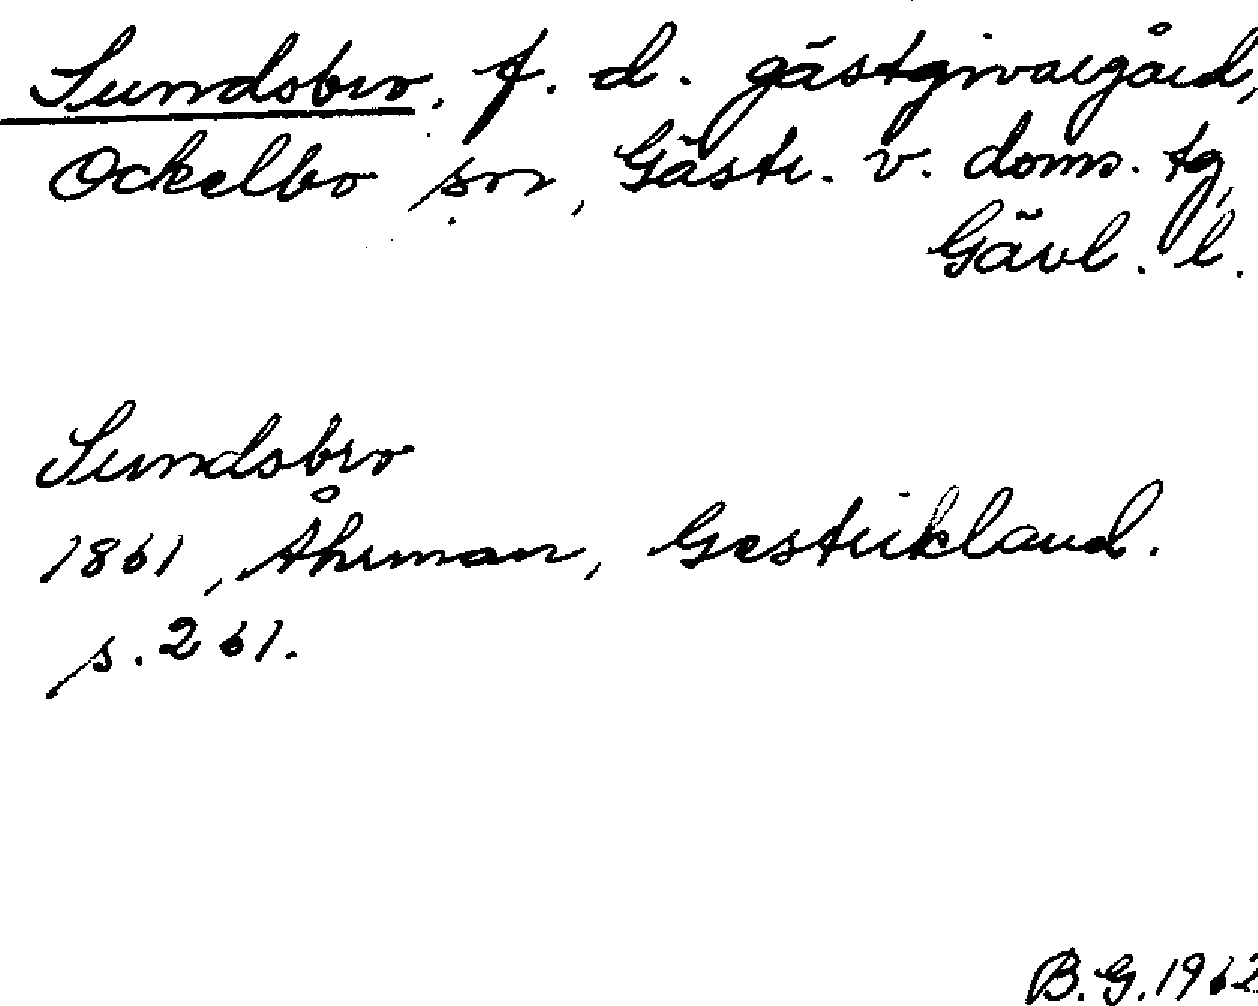 Sundsbro, f. d. gästgivargård,
Ockelbo sn, Gästr. v. doms. tg,
Gävl. l.
Sundsbro
1861, Åhrman, Gestrikland.
s. 261.
B. G. 1962